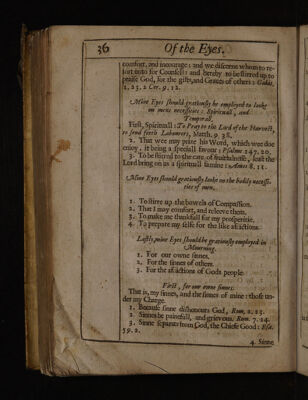 36 Of the Eyes.
comfort, and incourage: and we discerne whom to re-
sort unto for Counsell: and hereby to be stirred up to
praise God, for the gifts, and Graces of others: Galat.
1. 23. 2 Cor. 9. 12.
Mine Eyes should gratiously be employed to looke
on mens necessities: Spirituall, and
Temporall.
First, Spirituall: To Pray to the Lord of the Harvest,
to send forth Labourers, Matth. 9. 38.
2. That wee may prize his Word, which wee doe
enjoy, it being a speciall favour: Psalme 147. 20.
3. To be stirred to the care of fruitfulnesse, least the
Lord bring on us a spirituall famine: Amos 8. 11.
Mine Eyes should gratiously looke on the bodily necessi-
ties of men.
1. To stirre up the bowels of Compassion.
2. That I may comfort, and releeve them.
3. To make me thankfull for my prosperitie.
4. To prepare my selfe for the like afflictions.
Lastly, mine Eyes should be gratiously employed in
Mourning.
1. For our owne sinnes.
2. For the sinnes of others.
3. For the afflictions of Gods people.
First, for our owne sinnes.
That is, my sinnes, and the sinnes of mine: those un-
der my Charge.
1. Because sinne dishonours God, Rom. 2. 23.
2. Sinnes be painefull, and grievous. Rom. 7. 24.
3. Sinne separats from God, the Chiefe Good: Esa.
59. 2.
4. Sinne